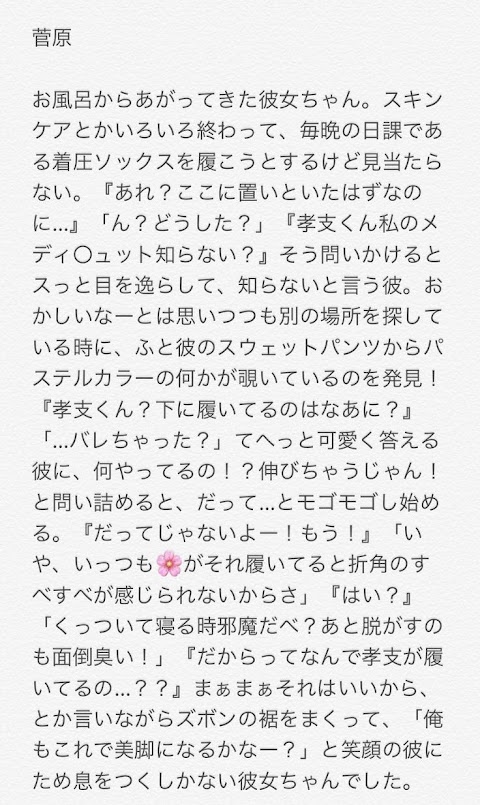 菅原
お風呂からあがってきた彼女ちゃん。スキン
ケアとかいろいろ終わって、毎晩の日課であ
る着圧ソックスを履こうとするけど見当たら
ない。『あれ？ここに置いといたはずなの
に…』「ん？どうした？」『孝支くん私のメ
ディ〇ュット知らない？』そう問いかけると
スっと目を逸らして、知らないと言う彼。お
かしいなーとは思いつつも別の場所を探して
いる時に、ふと彼のスウェットパンツからパ
ステルカラーの何かが覗いているのを発見！
『孝支くん？下に履いてるのはなあに？』
「…バレちゃった？」てへっと可愛く答える
彼に、何やってるの！？伸びちゃうじゃん！
と問い詰めると、だって…とモゴモゴし始め
る。『だってじゃないよー！もう！』「い
や、いっつも🌸がそれ履いてると折角のす
べすべが感じられないからさ」『はい？』
「くっついて寝る時邪魔だべ？あと脱がすの
も面倒臭い！」『だからってなんで孝支が履
いてるの…？？』まぁまぁそれはいいから、
とか言いながらズボンの裾をまくって、「俺
もこれで美脚になるかなー？」と笑顔の彼に
ため息をつくしかない彼女ちゃんでした。